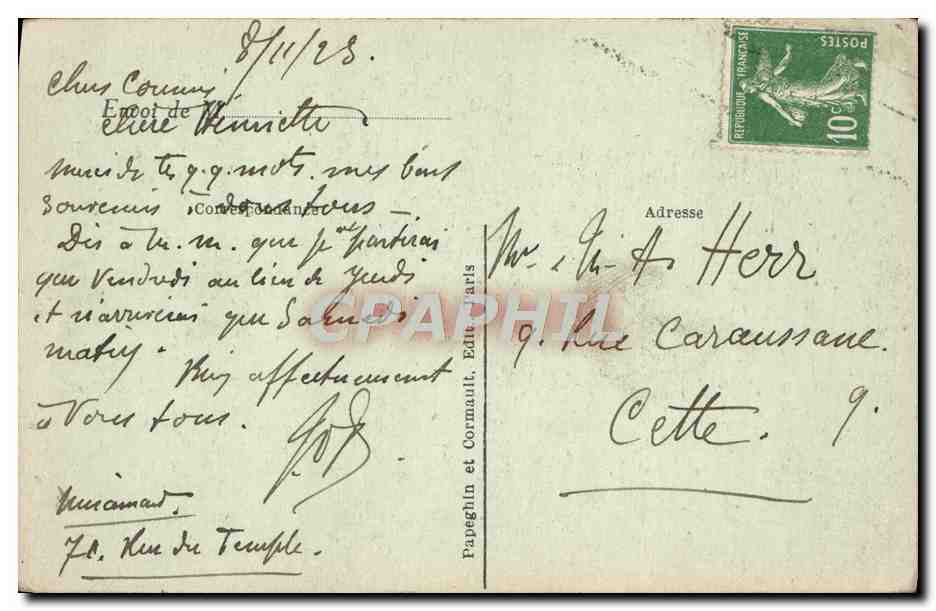 8/11/23.
Chers Cousins
Envoi de M
chère Henriette
merci de tes q.q. mots. mes bons
souvenirs à vous tous
Correspondance
Dis à M. M. que je ne partirai
que Vendredi au lieu de Jeudi
et n'arriverai que Samedi
matin.
Bien affectueusement
à Vous tous.
71. Rue du Temple.
Papeghin et Cormault, Edit. Paris
POSTES
REPUBLIQUE FRANÇAISE
10c
Adresse
Mr. & M. A. Herr
9. Rue Caraussane.
Cette. 9.
CPAPHIL